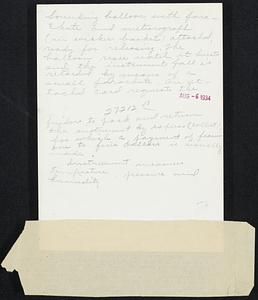 Sounding balloon with para-
chute and meteorograph
(in wicker basket) attached
ready for releasing. The
balloon rises until it bursts
and the instrument fall is
retarded by means of a
small parachute. An at-
tached card requests the
AUG -6 1934
27212 C
finder to pack and return
the instrument by express (collect)
for which a payment of from
one to five dollars is usually
made.
Instrument measures
temperature, pressure and
humidity